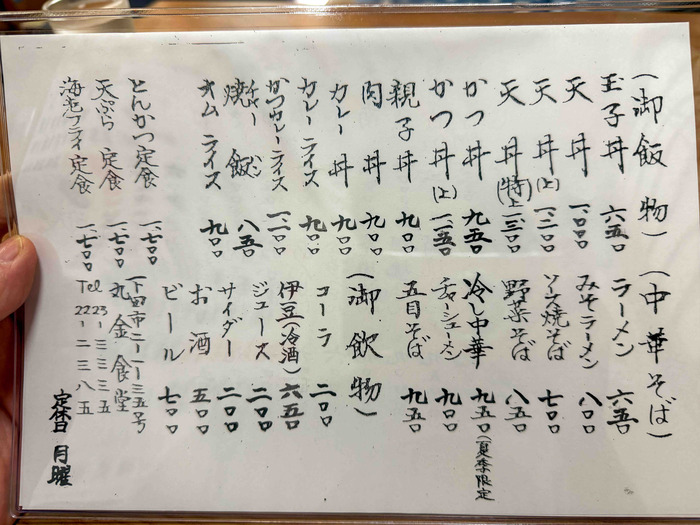 (御飯物)
玉子丼 六五〇
天丼 一、〇〇〇
天丼(上) 一、二〇〇
天丼(特上) 一、三〇〇
かつ丼 九五〇
かつ丼(上)
親子丼 九〇〇
肉丼 九〇〇
カレー丼 九〇〇
カレーライス 九〇〇
かつカレーライス 一、二〇〇
焼飯 チャーハン 八五〇
オムライス 九〇〇
とんかつ定食 一、七〇〇
天ぷら定食 一、七〇〇
海老フライ定食 一、七〇〇
(中華そば)
ラーメン 六五〇
みそラーメン 八〇〇
ソース焼そば 七〇〇
野菜そば 八五〇
冷し中華 九五〇(夏季限定)
チャーシューメン 九〇〇
五目そば 九五〇
(御飲物)
コーラ 二〇〇
伊豆(冷酒) 六五〇
ジュース 二〇〇
サイダー 二〇〇
お酒 五〇〇
ビール 七〇〇
下田市二-一-三五号
丸金食堂
Tel 23-三三三五
22-二三八五
定休日 月曜